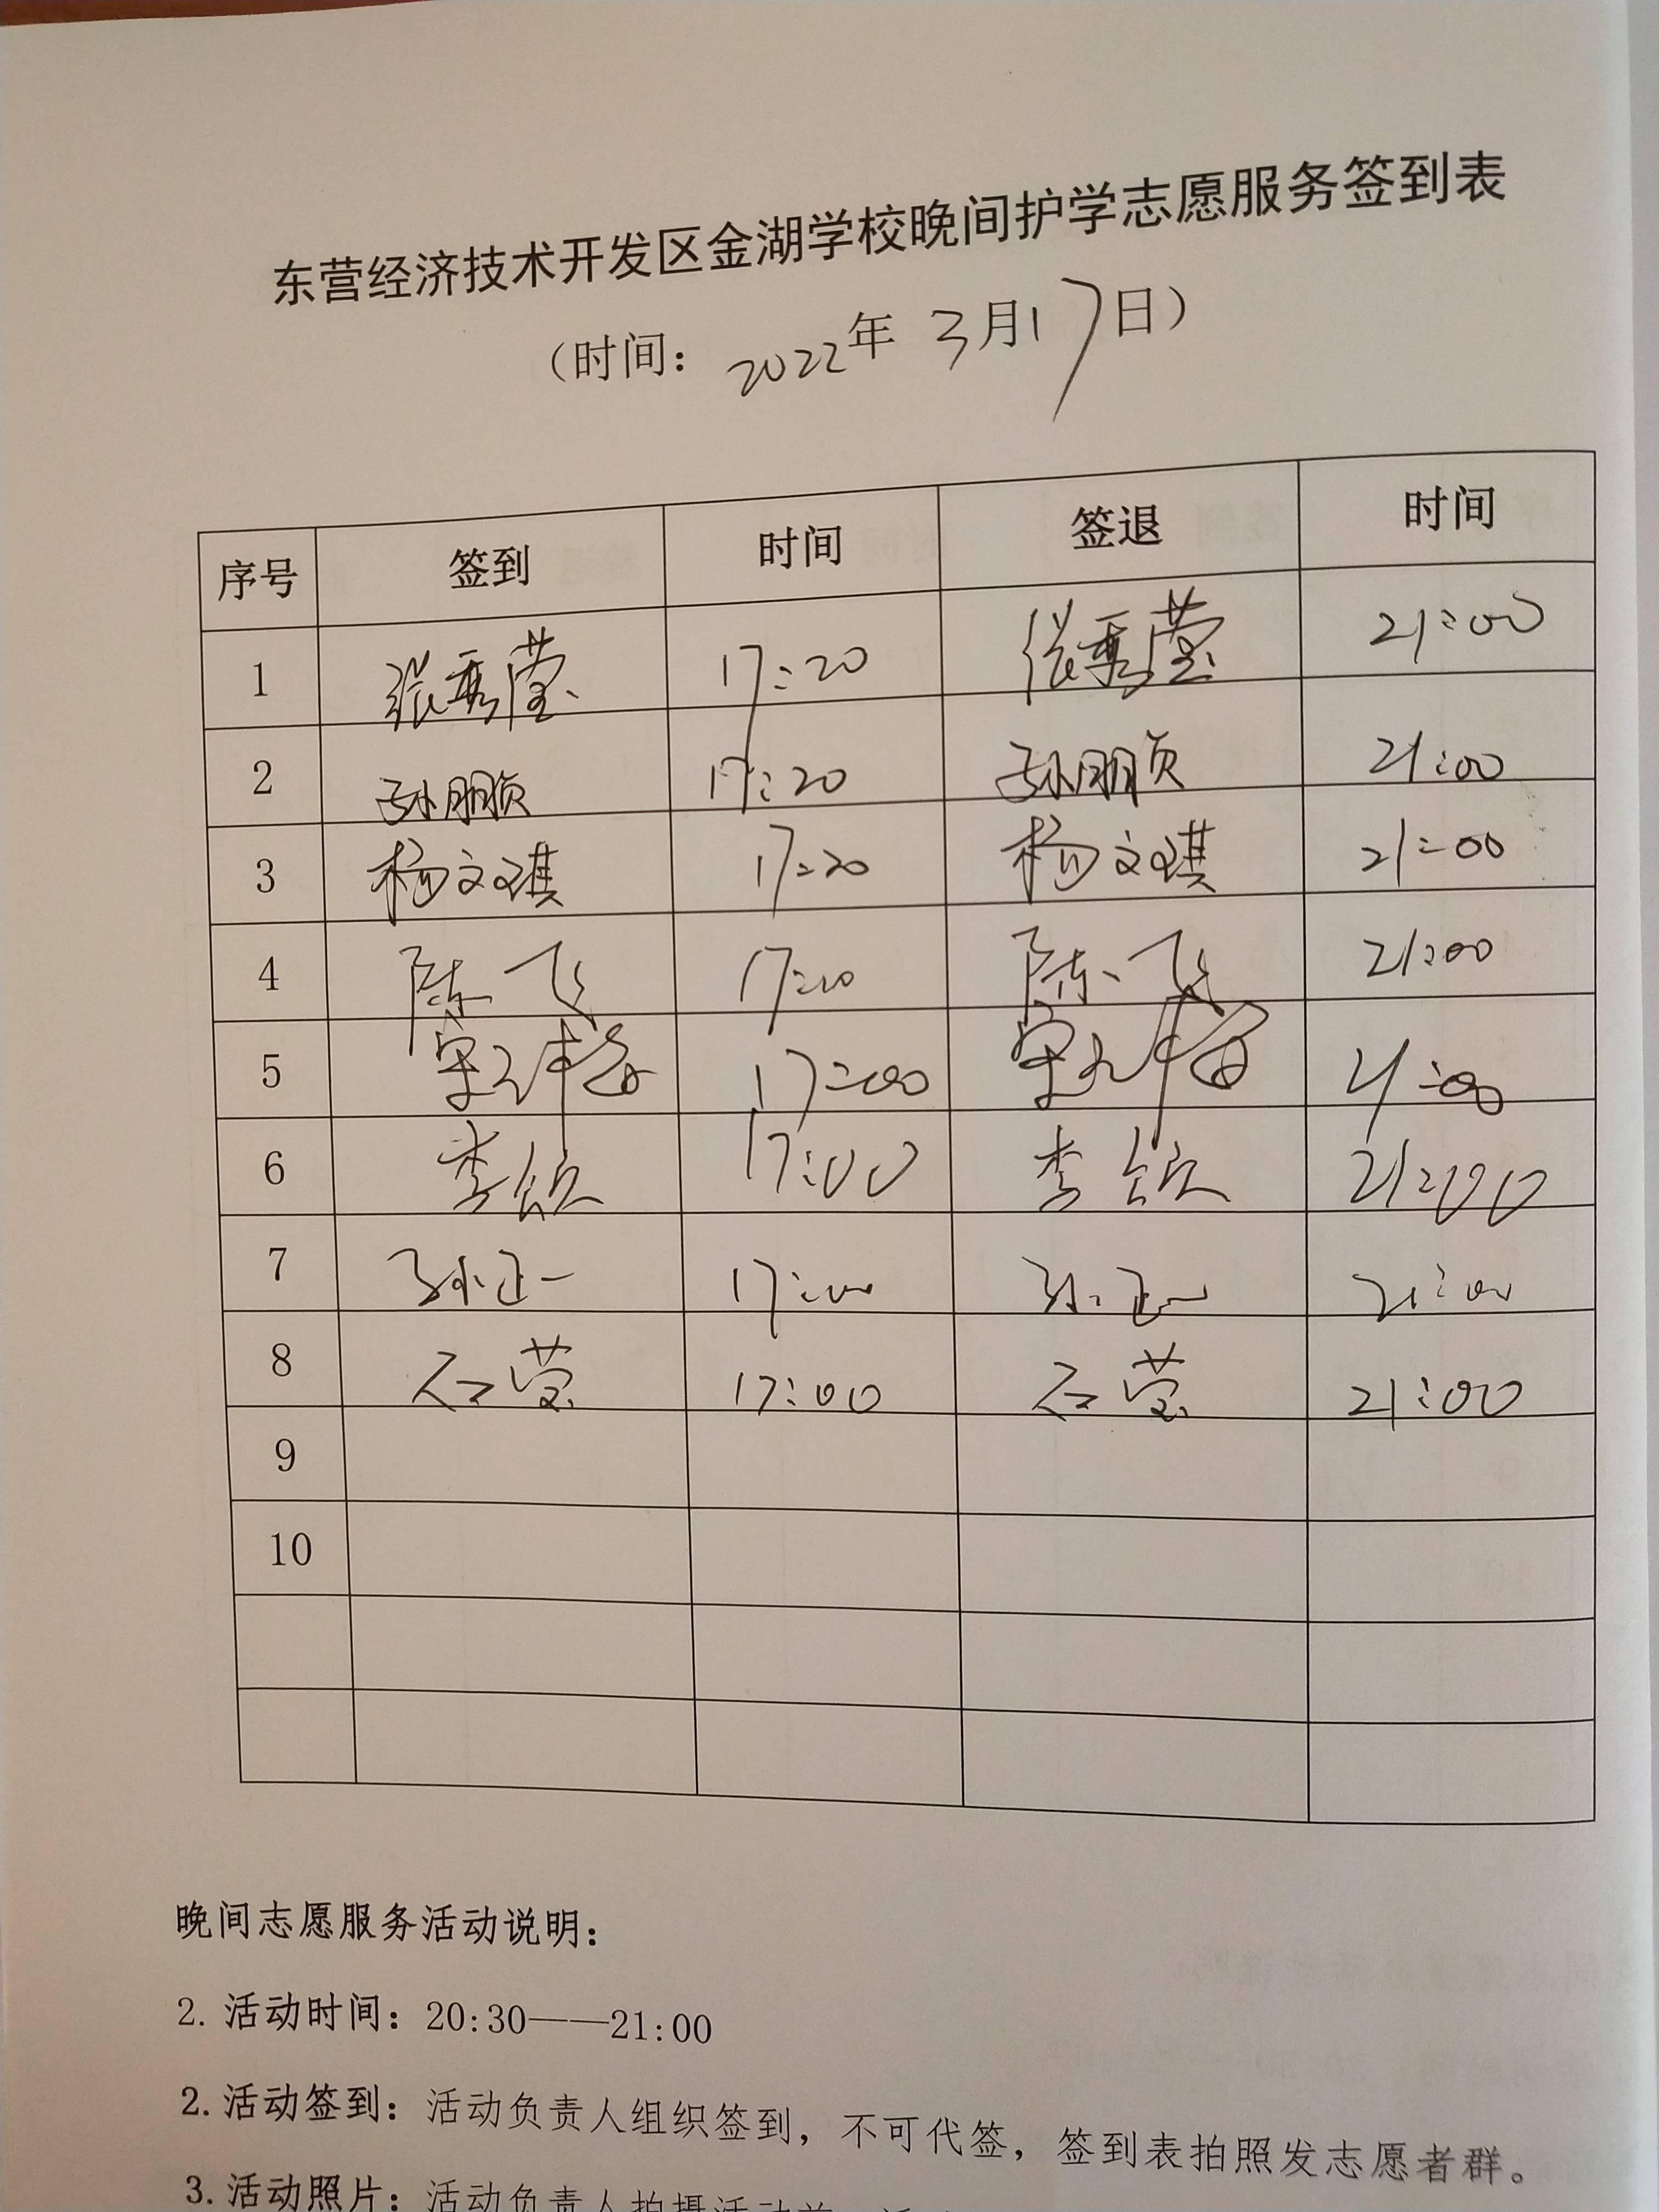 东营经济技术开发区金湖学校晚间护学志愿服务签到表
（时间：2022年 3月17日）
序号 签到 时间 签退 时间
1 张秀莹 17:20 张秀莹 21:00
2 孙鹏顺 17:20 孙鹏顺 21:00
3 杨文琪 17:20 杨文琪 21:00
4 陈飞 陈飞 21:00
5 17:00 21:00
6 李欣 17:00 李欣 21:00
7 孙正一 17:00 孙正一 21:00
8 石莹 17:00 石莹 21:00
9
10
晚间志愿服务活动说明：
2. 活动时间：20:30——21:00
2. 活动签到：活动负责人组织签到，不可代签，签到表拍照发志愿者群。
3. 活动照片：活动负责人拍摄活动前、活